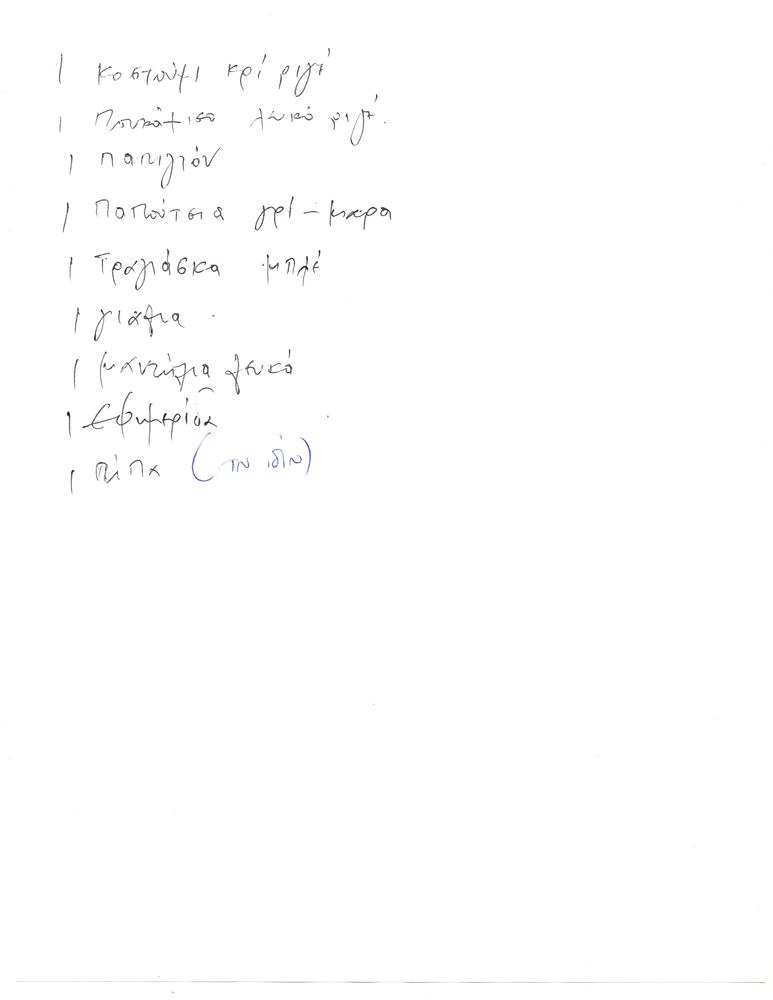 1 κοστούμι κρί ριγέ
1 πουκάμισο λευκό ριγέ.
1 παπιγιόν
1 Παπούτσια γρί - μαύρα
1 Τραγιάσκα μπλέ
1 γιάλια
1 μαντήλια λευκό
1 Εφημερίδα
1 πίπα (